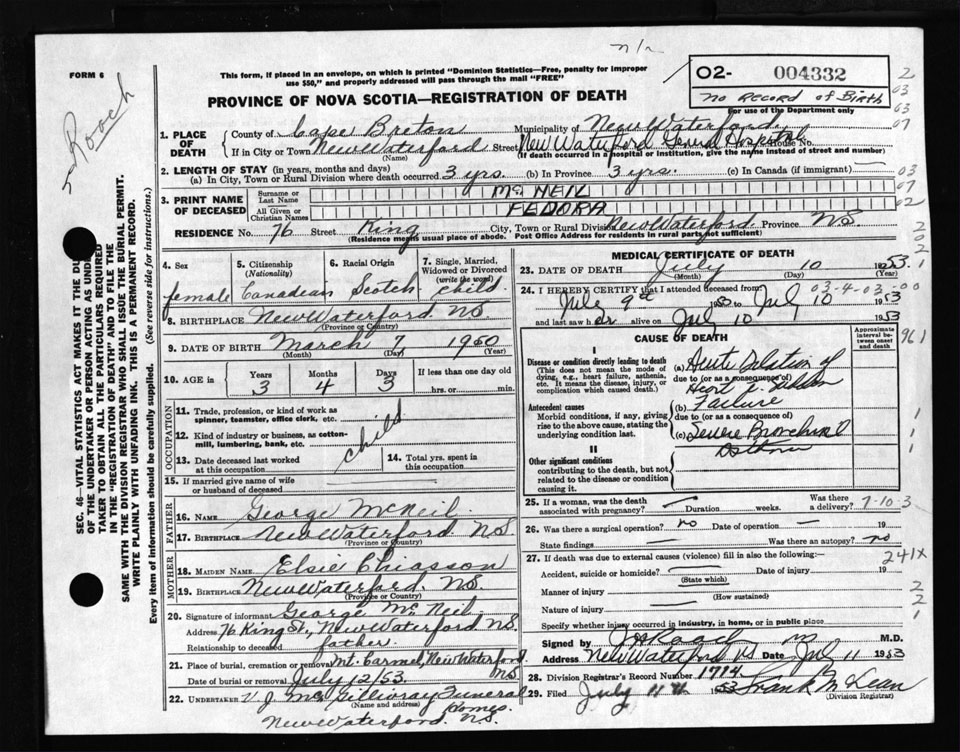 n/a
FORM 6
This form, if placed in an envelope, on which is printed "Dominion Statistics—Free, penalty for improper
use $50," and properly addressed will pass through the mail "FREE"
PROVINCE OF NOVA SCOTIA—REGISTRATION OF DEATH
02- 004332
No RECORD of BIRTH
For use of the Department only
Rooch
2
03
03
07
1. PLACE OF DEATH County of Cape Breton Municipality of New Waterford
If in City or Town New Waterford Street New Waterford General Hospital House No.
(Name) (If death occurred in a hospital or institution, give the name instead of street and number)
2. LENGTH OF STAY (in years, months and days)
(a) In City, Town or Rural Division where death occurred 3 yrs. (b) In Province 3 yrs. (c) In Canada (if immigrant)
03
07
02
3. PRINT NAME OF DECEASED Surname or Last Name McNEIL
All Given or Christian Names FEDORA
RESIDENCE No. 76 Street King City, Town or Rural Division New Waterford Province NS
(Residence means usual place of abode. Post Office Address for residents in rural parts not sufficient)
4. Sex female
5. Citizenship (Nationality) Canadian
6. Racial Origin Scotch
7. Single, Married, Widowed or Divorced (write the word) child
8. BIRTHPLACE New Waterford NS
(Province or Country)
9. DATE OF BIRTH March 7 1950
(Month) (Day) (Year)
10. AGE in Years 3 Months 4 Days 3 If less than one day old hrs. or min.
OCCUPATION
11. Trade, profession, or kind of work as spinner, teamster, office clerk, etc.
12. Kind of industry or business, as cotton-mill, lumbering, bank, etc.
child
13. Date deceased last worked at this occupation
14. Total yrs. spent in this occupation
15. If married give name of wife or husband of deceased
FATHER
16. NAME George McNeil
17. BIRTHPLACE New Waterford NS
(Province or Country)
MOTHER
18. MAIDEN NAME Elsie Chiasson
19. BIRTHPLACE New Waterford, NS
(Province or Country)
20. Signature of informant George McNeil
Address 76 King St., New Waterford NS.
Relationship to deceased father
21. Place of burial, cremation or removal Mt. Carmel, New Waterford NS
Date of burial or removal July 12/53.
22. UNDERTAKER V. J. McGillivray Funeral Homes.
(Name and address)
New Waterford, NS.
MEDICAL CERTIFICATE OF DEATH
23. DATE OF DEATH July 10 1953
(Month) (Day) (Year)
24. I HEREBY CERTIFY that I attended deceased from:
03-4-03-00
July 9th 1953 to July 10 1953
and last saw her alive on Jul 10 1953
CAUSE OF DEATH
Approximate interval between onset and death
I
Disease or condition directly leading to death
(This does not mean the mode of dying, e.g., heart failure, asthenia, etc. It means the disease, injury, or complication which caused death.)
(a) Acute Dilation of
due to (or as a consequence of)
Heart
(b) Failure
Antecedent causes
Morbid conditions, if any, giving rise to the above cause, stating the underlying condition last.
due to (or as a consequence of)
(c) Severe Bronchial
Asthma
II
Other significant conditions
contributing to the death, but not related to the disease or condition causing it.
25. If a woman, was the death associated with pregnancy? — Duration weeks. Was there a delivery?
7-10-3
26. Was there a surgical operation? no Date of operation — 19
State findings — Was there an autopsy? no
27. If death was due to external causes (violence) fill in also the following:
241x
Accident, suicide or homicide? — Date of injury 19
(State which)
Manner of injury
(How sustained)
Nature of injury
Specify whether injury occurred in industry, in home, or in public place
Signed by M.D.
Address New Waterford NS Date Jul 11 1953
28. Division Registrar's Record Number 1714
29. Filed July 11 1953 Frank McLean
(Division Registrar)
SEC. 46—VITAL STATISTICS ACT MAKES IT THE DU
OF THE UNDERTAKER OR PERSON ACTING AS UNDER
TAKER TO OBTAIN ALL THE PARTICULARS REQUIRED
IN THE "REGISTRATION OF DEATH" AND TO FILE THE
SAME WITH THE DIVISION REGISTRAR WHO SHALL ISSUE THE BURIAL PERMIT.
WRITE PLAINLY WITH UNFADING INK. THIS IS A PERMANENT RECORD.
Every item of information should be carefully supplied. (See reverse side for instructions.)